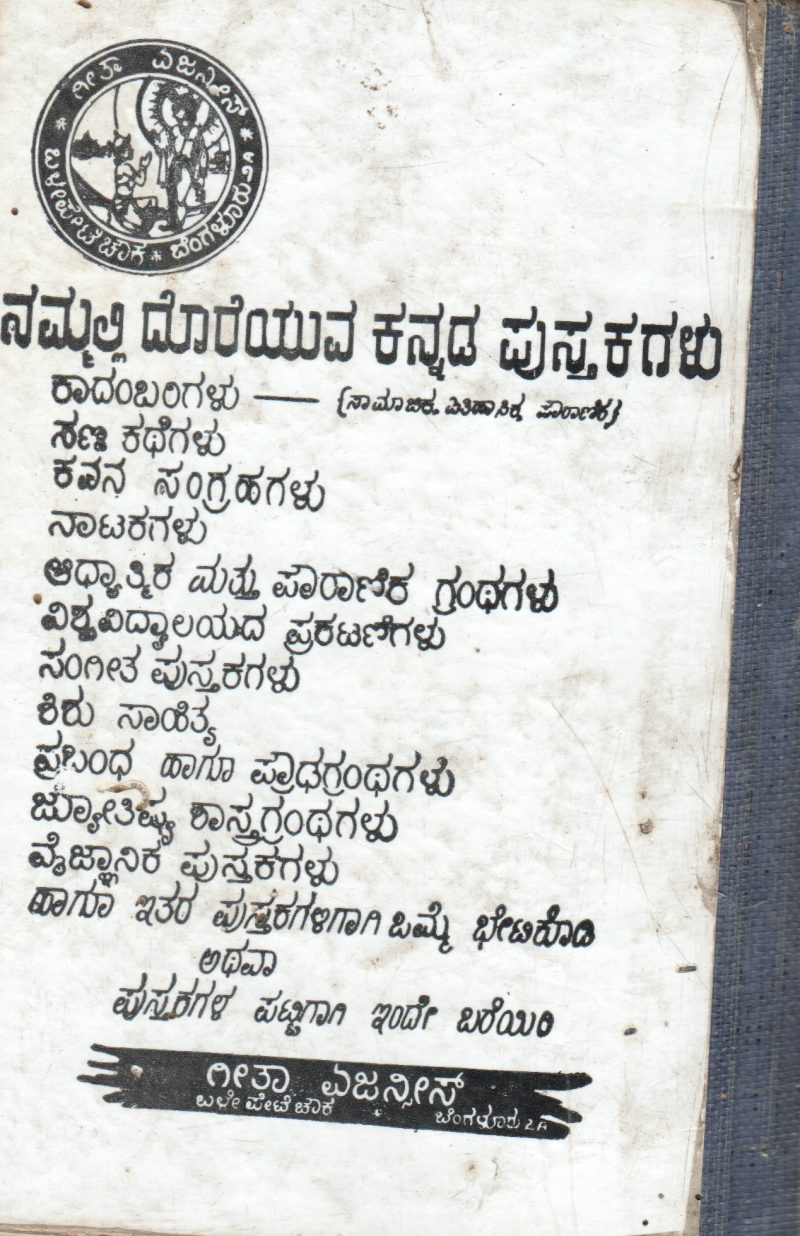 ಗೀತಾ ಏಜನ್ಸೀಸ್ * ಬಳೇಪೇಟೆ ಚೌಕ * ಬೆಂಗಳೂರು ೨A *
ನಮ್ಮಲ್ಲಿ ದೊರೆಯುವ ಕನ್ನಡ ಪುಸ್ತಕಗಳು
ಕಾದಂಬರಿಗಳು — {ಸಾಮಾಜಿಕ, ಐತಿಹಾಸಿಕ, ಪೌರಾಣಿಕ}
ಸಣ್ಣ ಕಥೆಗಳು
ಕವನ ಸಂಗ್ರಹಗಳು
ನಾಟಕಗಳು
ಆಧ್ಯಾತ್ಮಿಕ ಮತ್ತು ಪೌರಾಣಿಕ ಗ್ರಂಥಗಳು
ವಿಶ್ವವಿದ್ಯಾಲಯದ ಪ್ರಕಟಣೆಗಳು
ಸಂಗೀತ ಪುಸ್ತಕಗಳು
ಶಿಶು ಸಾಹಿತ್ಯ
ಪ್ರಬಂಧ ಹಾಗೂ ಪ್ರೌಢಗ್ರಂಥಗಳು
ಜ್ಯೋತಿಷ್ಯ ಶಾಸ್ತ್ರಗ್ರಂಥಗಳು
ವೈಜ್ಞಾನಿಕ ಪುಸ್ತಕಗಳು
ಹಾಗೂ ಇತರ ಪುಸ್ತಕಗಳಿಗಾಗಿ ಒಮ್ಮೆ ಭೇಟಿಕೊಡಿ
ಅಥವಾ
ಪುಸ್ತಕಗಳ ಪಟ್ಟಿಗಾಗಿ ಇಂದೇ ಬರೆಯಿರಿ
ಗೀತಾ ಏಜನ್ಸೀಸ್
ಬಳೇಪೇಟೆ ಚೌಕ
ಬೆಂಗಳೂರು ೨A